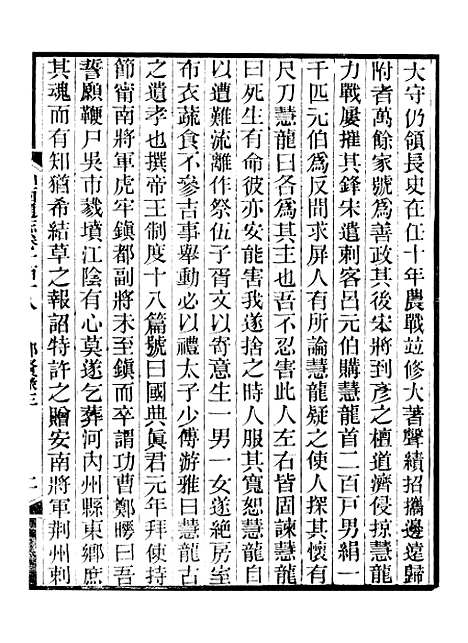 大守仍領長史在任十年農戰竝修大著聲績招攜邊遠歸
附者萬餘家號為善政其後宋將到彥之檀道濟侵掠慧龍
力戰屢摧其鋒宋遣刺客呂元伯購慧龍首二百戶男絹一
千匹元伯為反間來求屏人有所論慧龍疑之使人探其懷有
尺刀慧龍曰各為其主也吾不忍害此人左右皆固諫慧龍
曰死生有命彼亦安能害我遂捨之時人服其寬恕慧龍自
以遭難流離作祭伍子胥文以寄意生一男一女遂絕房室
布衣蔬食不參吉事舉動必以禮太子少傅游雅曰慧龍古
之遺孝也撰帝王制度十八篇號曰國典真君元年拜使持
節甯南將軍虎牢鎮都副將未至鎮而卒謂功曹鄭曄曰吾
誓願鞭尸吳市戮墳江陰有心莫遂乞葬河內州縣東鄉庶
其魂而有知猶希結草之報詔特許之贈安南將軍荆州刺